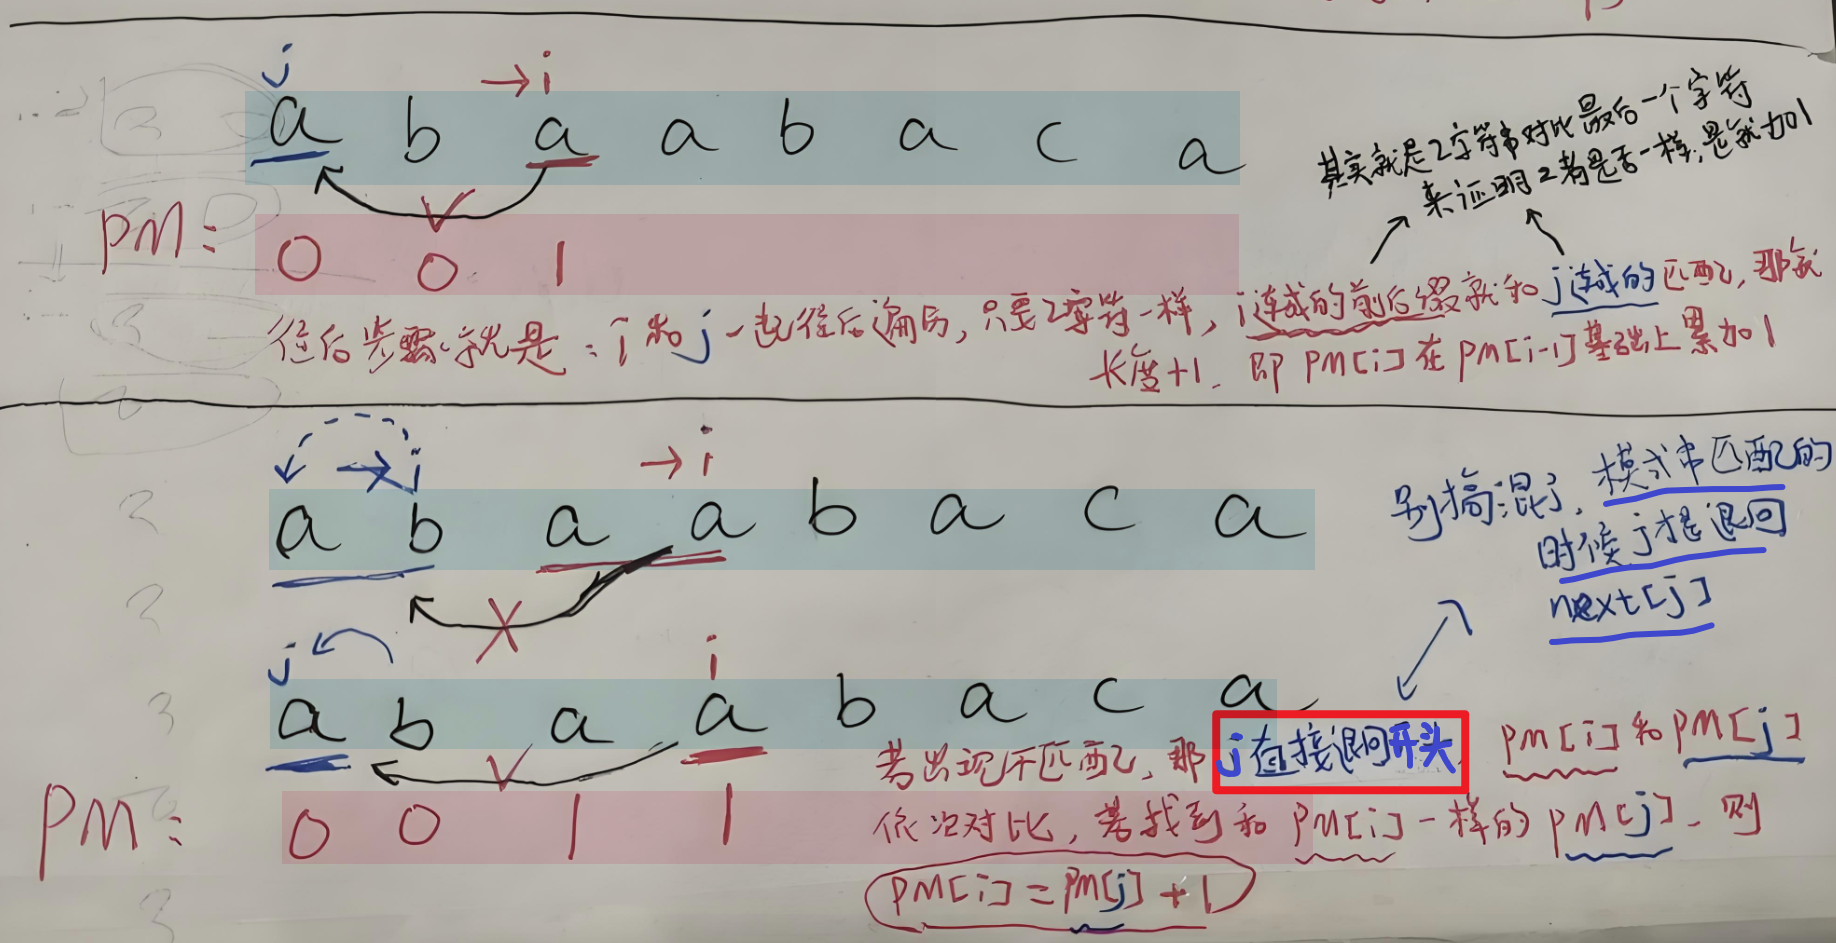 j → i
a b a a b a c a
PM: 0 0 1
其实就是2字符串对比最后一个字符
来证明2者是否一样,是就加1
往后步骤就是:i和j一起往后遍历,只要2字符一样,i连成的前后缀就和j连成的匹配,那就
长度+1. 即PM[i]在PM[i-1]基础上累加1
→ j → i
a b a a b a c a
别搞混了,模式串匹配的
时候j才是退回
next[j]
j i
a b a a b a c a
PM: 0 0 1 1
若出现不匹配,那j直接退回开头,PM[i]和PM[j]
依次对比,若找到和PM[i]一样的PM[j],则
PM[i]=PM[j]+1